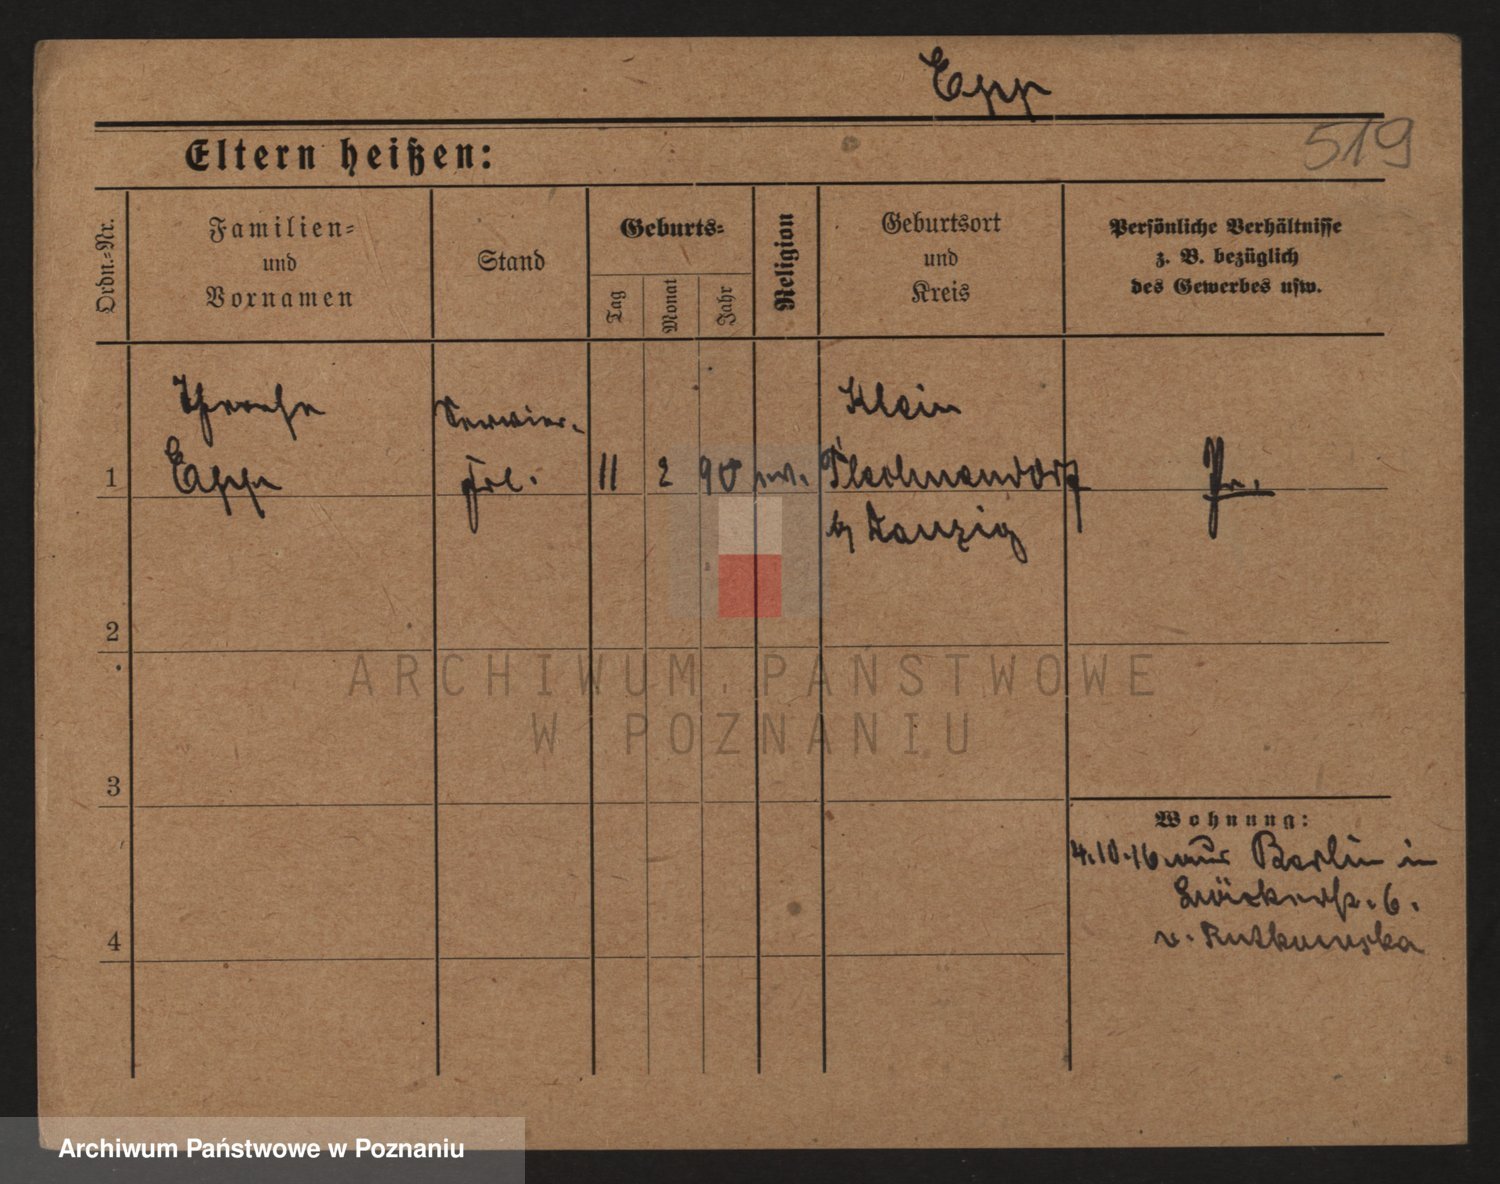 Epp
519
Eltern heißen:
Ordn.=Nr.
Familien=
und
Vornamen
Stand
Geburts=
Tag
Monat
Jahr
Religion
Geburtsort
und
Kreis
Persönliche Verhältnisse
z. B. bezüglich
des Gewerbes usw.
Therese Servier- Klein
1 Epp Frl. 11 2 90 Pr.
Danzig
2
ARCHIWUM PAŃSTWOWE
W POZNANIU
3
Wohnung:
4.10.16 aus Berlin in
6.
v. Rutkowska
4
Archiwum Państwowe w Poznaniu